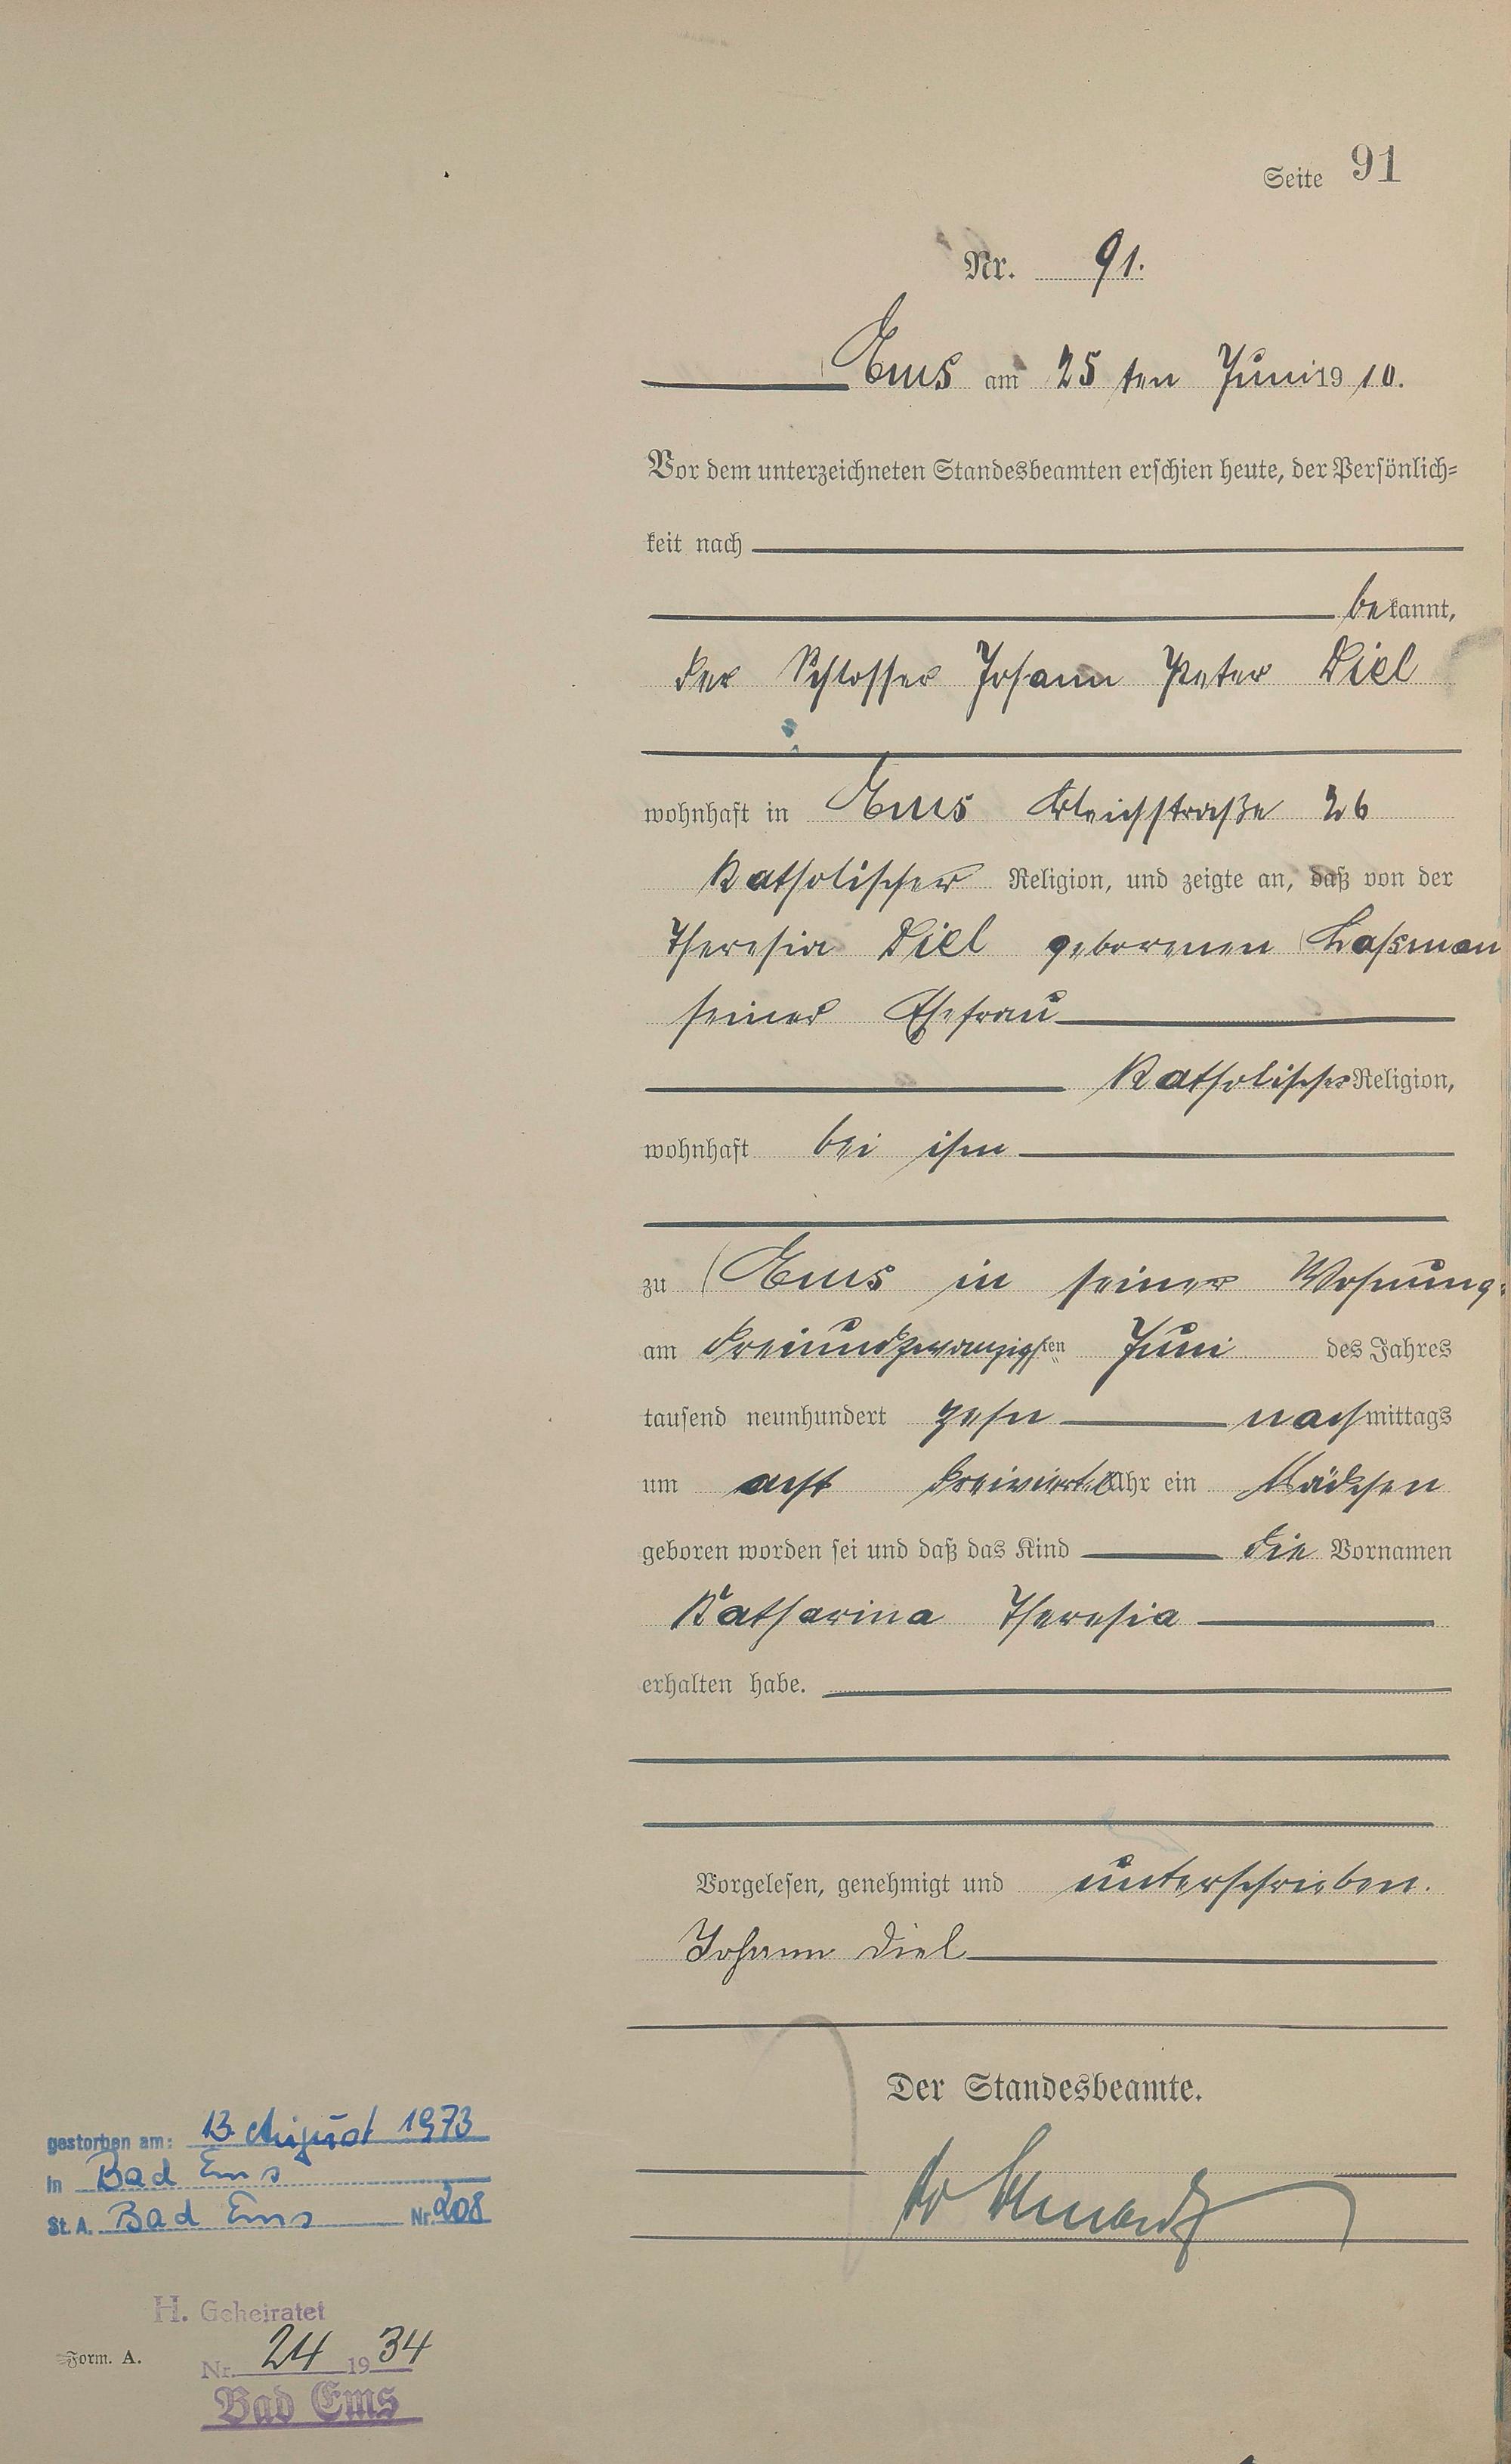 Seite 91
Nr. 91.
Ems am 25 ten Juni 19 10.
Vor dem unterzeichneten Standesbeamten erschien heute, der Persönlich=
keit nach
bekannt,
der Schlosser Johann Peter Diel
wohnhaft in Ems Bleichstraße 26
Katholischer Religion, und zeigte an, daß von der
Theresia Diel geborenen
seiner Ehefrau
Katholischer Religion,
wohnhaft bei ihm
zu Ems in seiner Wohnung
am dreiundzwanzigsten Juni des Jahres
tausend neunhundert zehn nachmittags
um acht dreiviertel Uhr ein Mädchen
geboren worden sei und daß das Kind die Vornamen
Katharina Theresia
erhalten habe.
Vorgelesen, genehmigt und unterschrieben.
Johann Diel
Der Standesbeamte.
gestorben am: 13. August 1973
in Bad Ems
St. A. Bad Ems Nr. 208
H. Geheiratet
Form. A.
Nr. 24 1934
Bad Ems